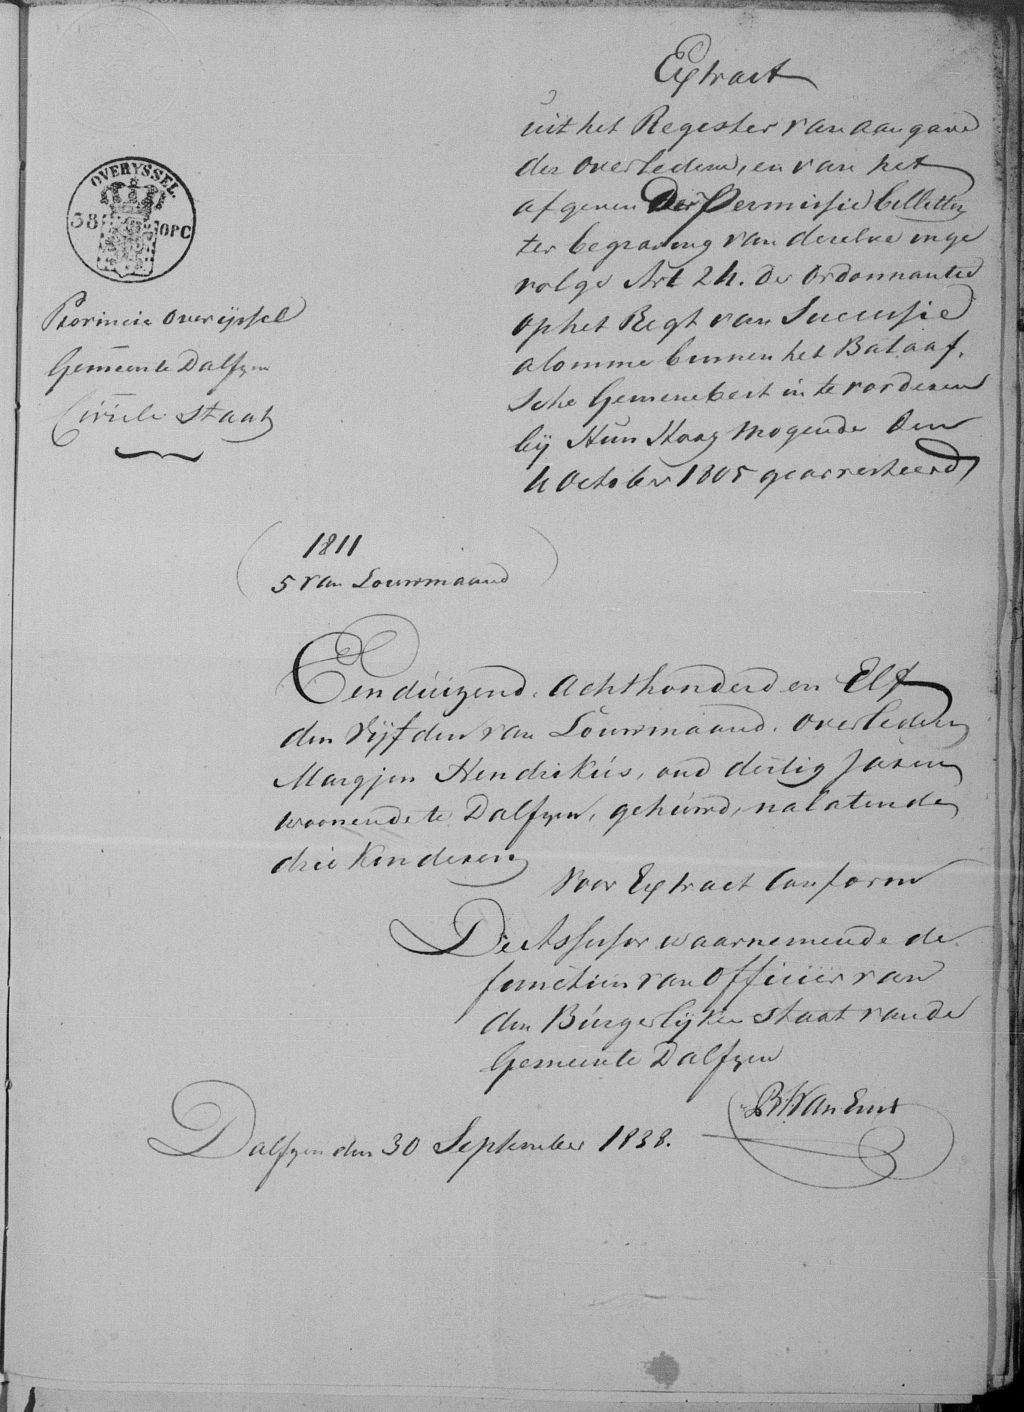 Extract
uit het Register van aangave
der overledene, en van het
afgeven Der Permissie billetten
ter begraving van deselve inge
volge Art 24. De Ordonnantie
op het Regt van Successie
alomme binnen het Bataaf,
sche Gemenebest in te vorderen
bij Hun Hoog Mogende Den
4 October 1805 gearresteerd
OVERYSSEL.
38 OPC
Provincie Overijssel
Gemeente Dalfzen
Civiele Staat
1811
5 van Louwmaand
Een duizend. Achthonderd en Elf
den Vijfden van Louwmaand. overleden
Margjen Hendrikus, oud dertig Jaren
woonende te Dalfzen, gehuwd, nalatende
drie Kinderen
Voor Extract Conform
De Assessor waarnemende de
functien van Officier van
den Burgerlijken staat van de
Gemeente Dalfzen
Dalfzen den 30 September 1838.